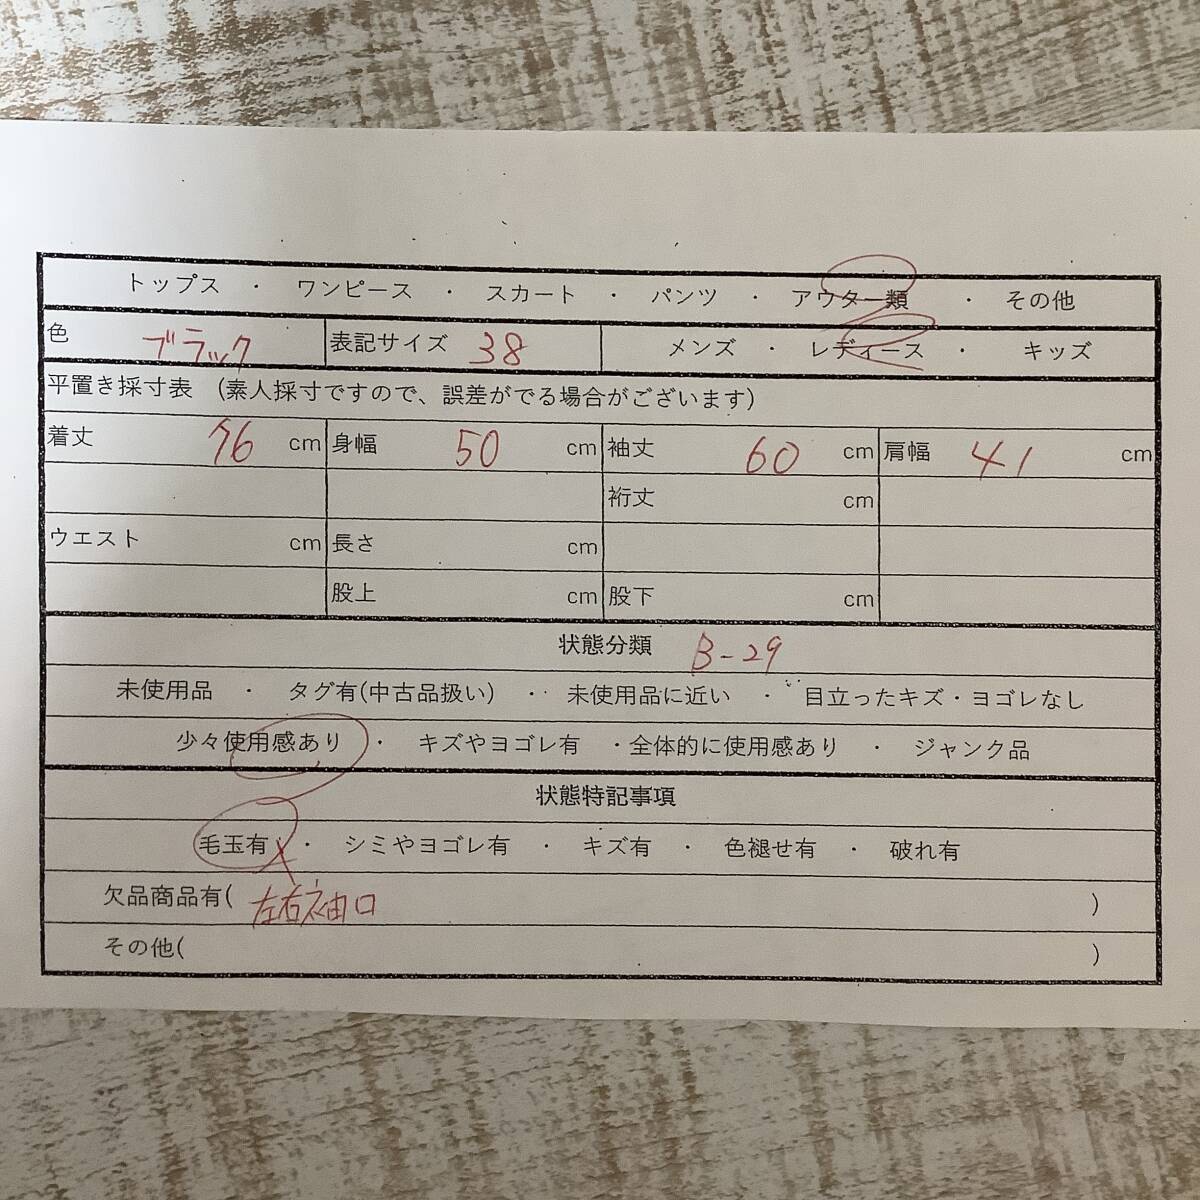 トップス ・ ワンピース ・ スカート ・ パンツ ・ アウター類 ・ その他
色 ブラック 表記サイズ 38 メンズ ・ レディース ・ キッズ
平置き採寸表 (素人採寸ですので、誤差がでる場合がございます)
着丈 76 cm 身幅 50 cm 袖丈 60 cm 肩幅 41 cm
裄丈 cm
ウエスト cm 長さ cm
股上 cm 股下 cm
状態分類 B-29
未使用品 ・ タグ有(中古品扱い) ・ 未使用品に近い ・ 目立ったキズ・ヨゴレなし
少々使用感あり ・ キズやヨゴレ有 ・全体的に使用感あり ・ ジャンク品
状態特記事項
毛玉有 ・ シミやヨゴレ有 ・ キズ有 ・ 色褪せ有 ・ 破れ有
欠品商品有( 左右袖口 )
その他( )